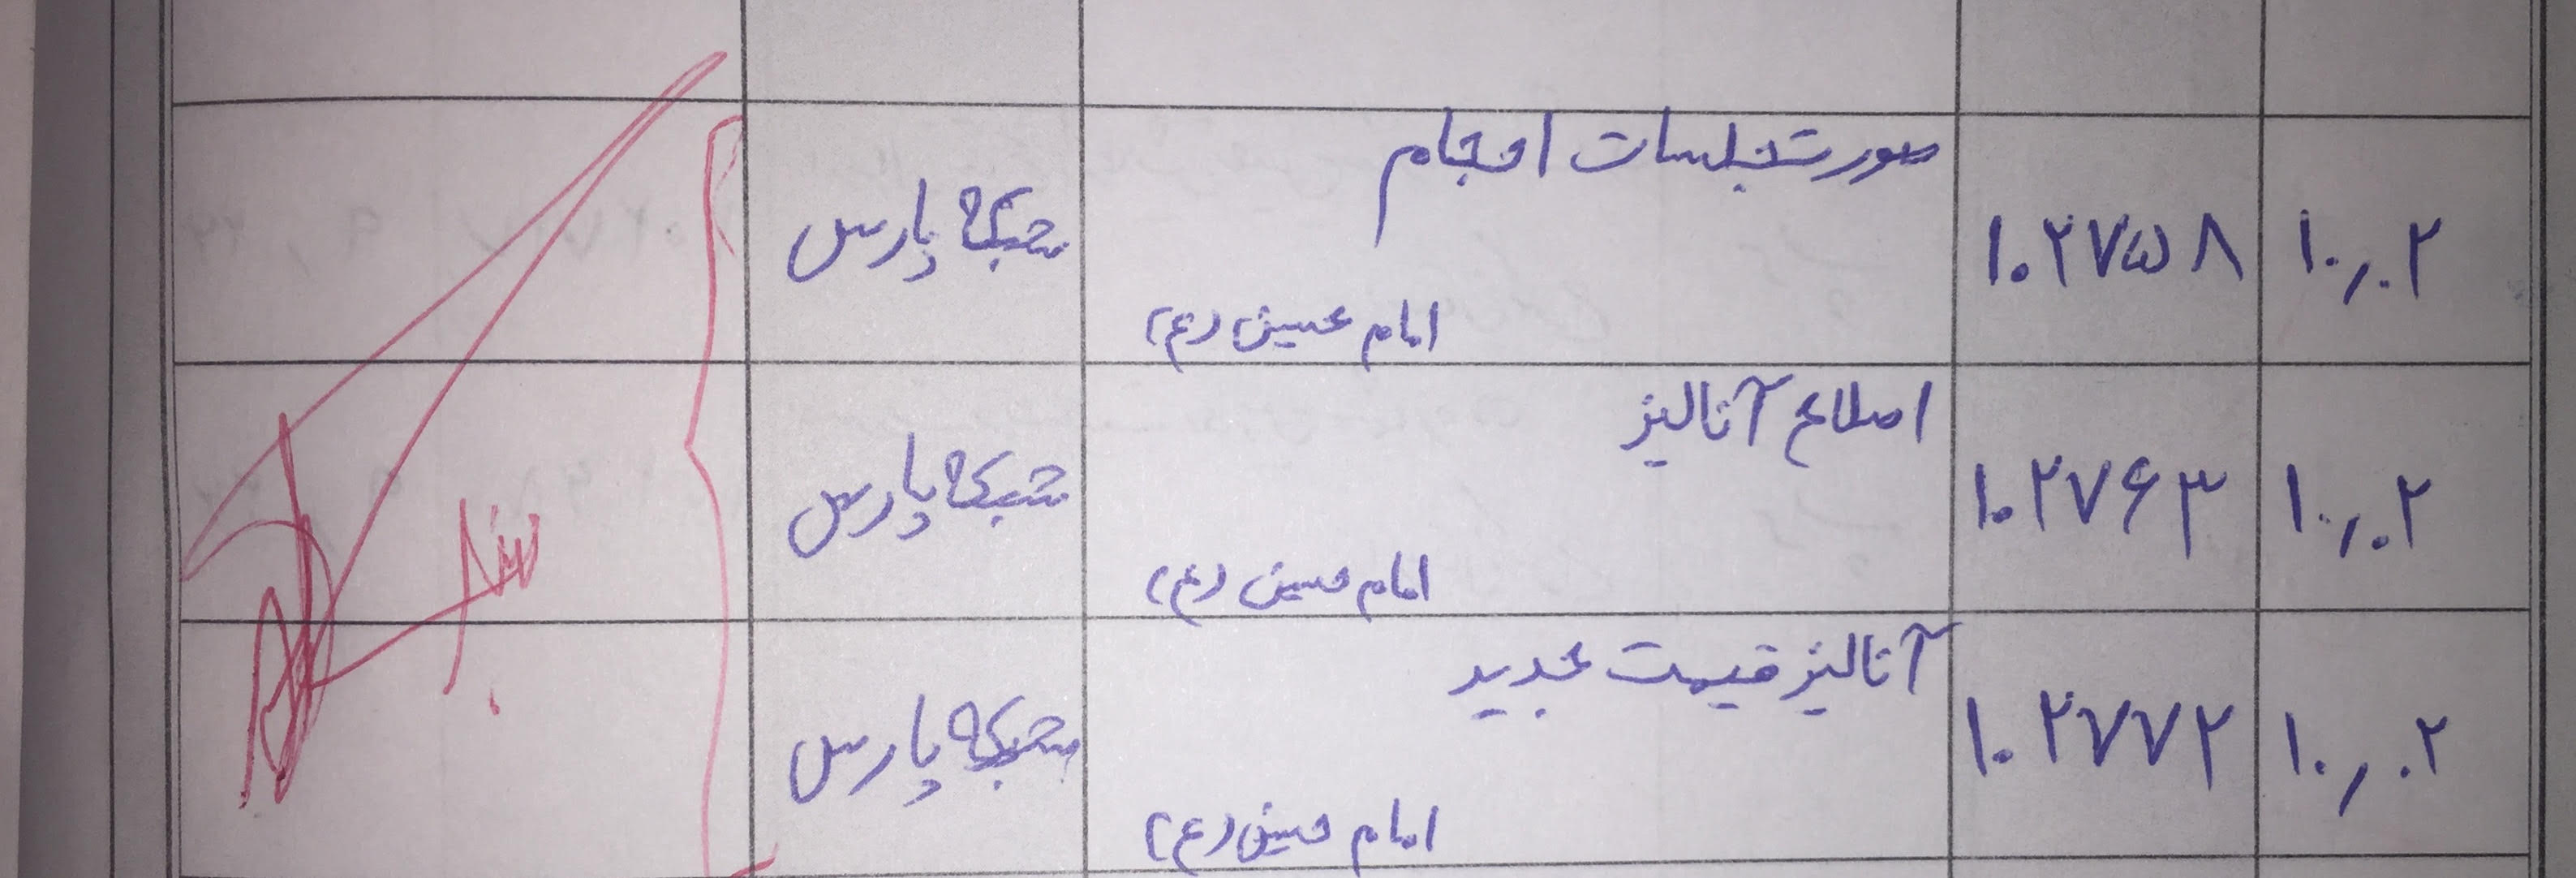 ۱۰,۰۲ ۱۰۲۷۵۸ صورتجلسات انجام شبکه پارس
امام حسین (ع)
۱۰,۰۲ ۱۰۲۷۶۳ اصلاح آنالیز شبکه پارس
امام حسین (ع)
۱۰,۰۲ ۱۰۲۷۷۲ آنالیز قیمت جدید شبکه پارس
امام حسین (ع)